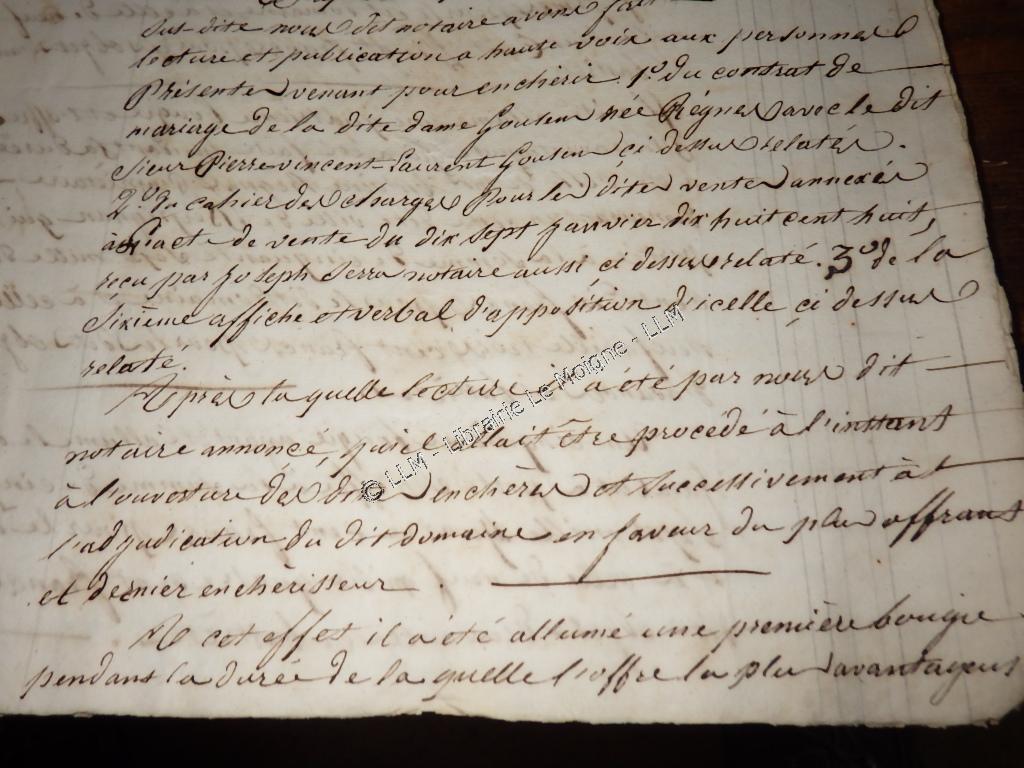 sus dite nous dit notaire avons fait
lecture et publication a haute voix aux personnes
Présentes venant pour enchérir. 1o. du contrat de
mariage de la dite dame née Régnes avec le dit
sieur Pierre vincent Laurent ci dessus relatés.
2o. cahier des charges Pour la dite vente annexés
à l'acte de vente du dix sept janvier dix huit cent huit,
reçu par Joseph Serra notaire aussi ci dessus relaté. 3o. de la
Sixième affiche et verbal d'apposition d'icelle ci dessus
relaté.
Après la quelle lecture il a été par nous dit
notaire annoncé, qu'il allait être procédé à l'instant
à l'ouverture des dites enchères et successivement à
l'adjudication du dit domaine en faveur du plus offrant
et dernier enchèrisseur.
A cet effet il a été allumé une première bougie
pendant la durée de la quelle l'offre la plus avantageus
© LLM - Librairie Le Moigne - LLM